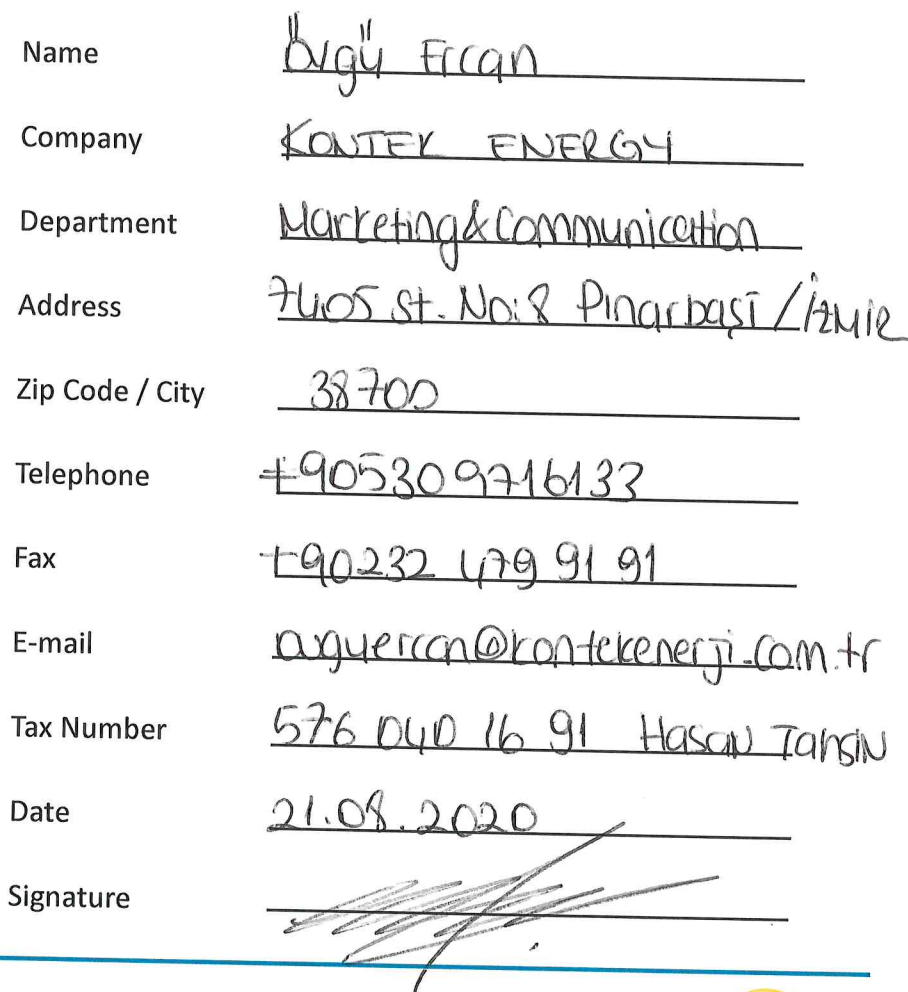 Name Övgü Ercan
Company KONTEK ENERGY
Department Marketing&Communication
Address 7405 st. No:8 Pınarbaşı / İzmir
Zip Code / City 38700
Telephone +905309716133
Fax +90232 479 91 91
E-mail ovguercan@kontekenerji.com.tr
Tax Number 576 040 16 91 Hasan Tahsin
Date 21.08.2020
Signature